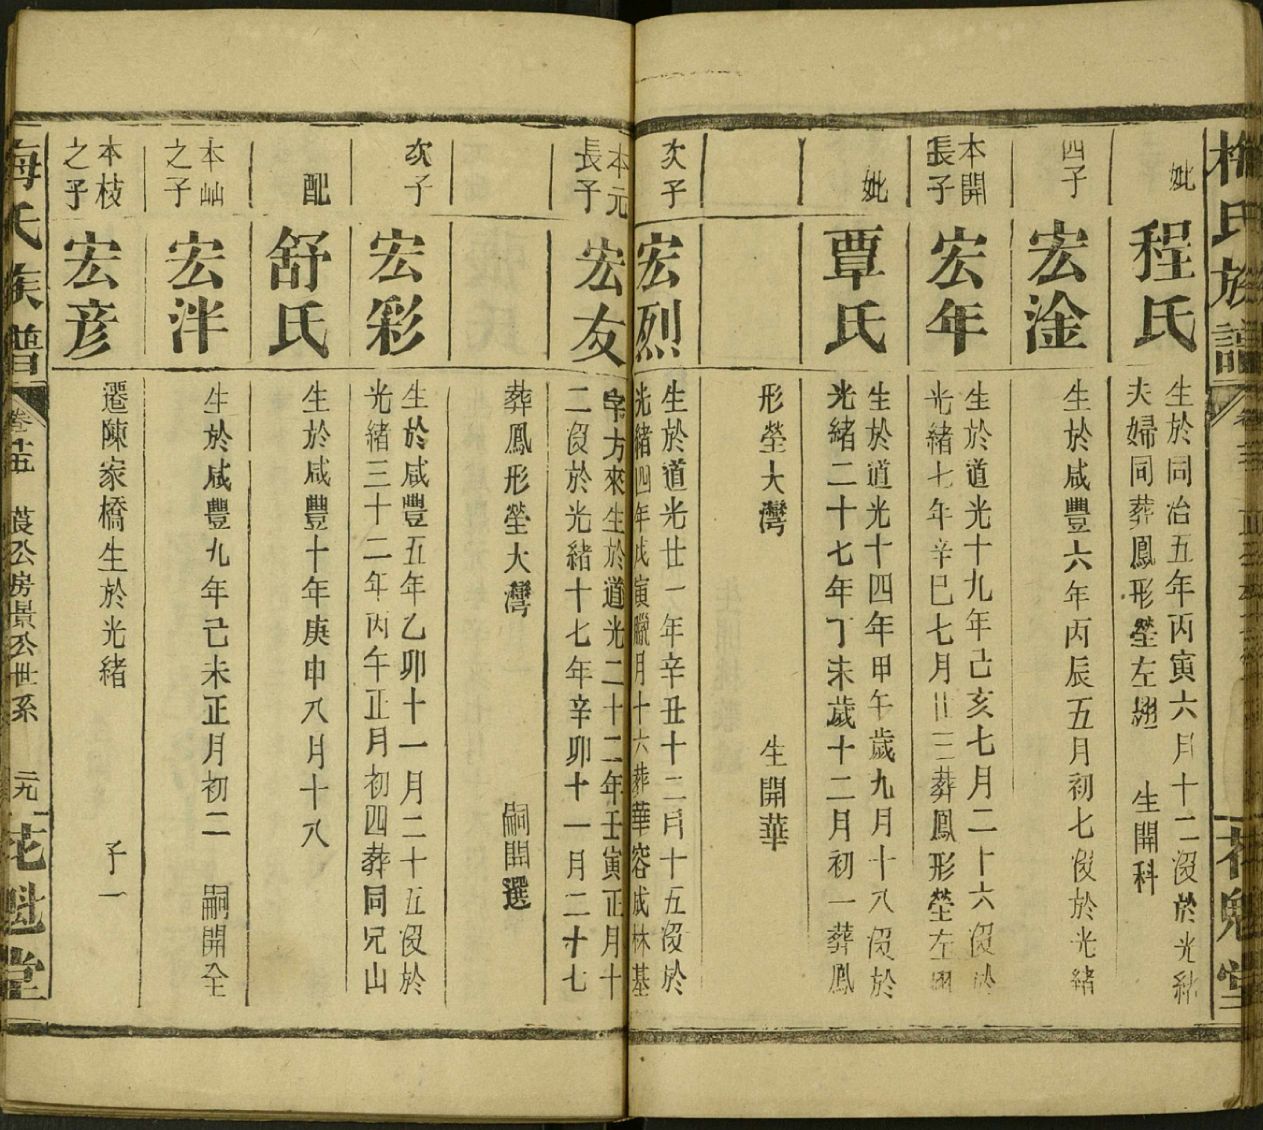 梅氏族譜
妣
程氏
生於同治五年丙寅六月十二沒於光緒
夫婦同葬鳳形塋左翅 生開科
四子
宏淦
生於咸豐六年丙辰五月初七沒於光緒
本開
長子
宏年
生於道光十九年己亥七月二十六沒於
光緒七年辛巳七月葬鳳形塋左
妣
覃氏
生於道光十四年甲午歲九月十八沒於
光緒二十七年丁未歲十二月初一葬鳳
形塋大灣 生開華
次子
宏烈
生於道光廿一年辛丑十二月十五沒於
光緒四年戊寅臘月十六葬華容城林基
本元
長子
宏友
字方來生於道光二十二年壬寅正月十
二沒於光緒十七年辛卯十一月二十七
葬鳳形塋大灣 嗣開選
次子
宏彩
生於咸豐五年乙卯十一月二十五沒於
光緒三十二年丙午正月初四葬同兄山
配
舒氏
生於咸豐十年庚申八月十八
本屾
之子
宏泮
生於咸豐九年己未正月初二 嗣開全
本枝
之子
宏彥
遷陳家橋生於光緒 子一
梅氏族譜
公房景公世系
花魁堂